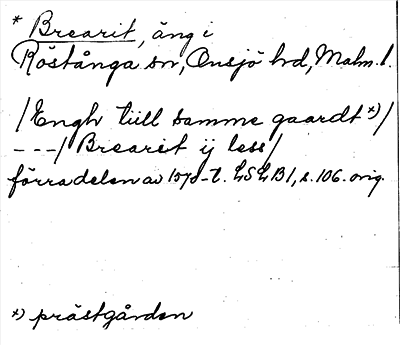 * Brearit, äng i
Röstånga sn, Onsjö hd, Malm. l.
/Engh tiill samme gaardt *)/
---/ Brearit ij less/
förra delen av 1570-t. LSLB 1, s. 106. orig.
*) prästgården